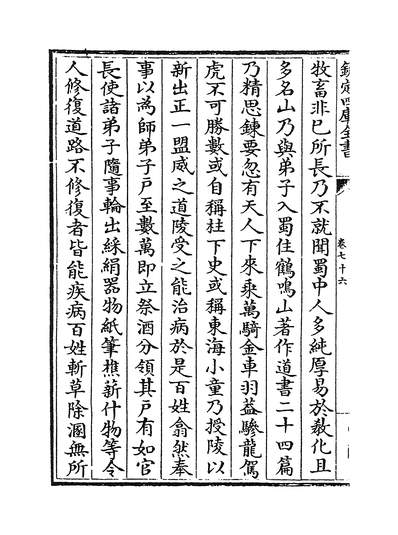 欽定四庫全書
卷七十六
牧畜非已所長乃不就聞蜀中人多純厚易於教化且
多名山乃與弟子入蜀住鶴鳴山著作道書二十四篇
乃精思鍊要忽有天人下來乘萬騎金車羽葢驂龍駕
虎不可勝數或自稱柱下史或稱東海小童乃授陵以
新出正一盟威之道陵受之能治病於是百姓翕然奉
事以為師弟子戶至數萬即立祭酒分領其戶有如官
長使諸弟子隨事輪出綵絹器物紙筆樵薪什物等令
人修復道路不修復者皆能疾病百姓斬草除溷無所